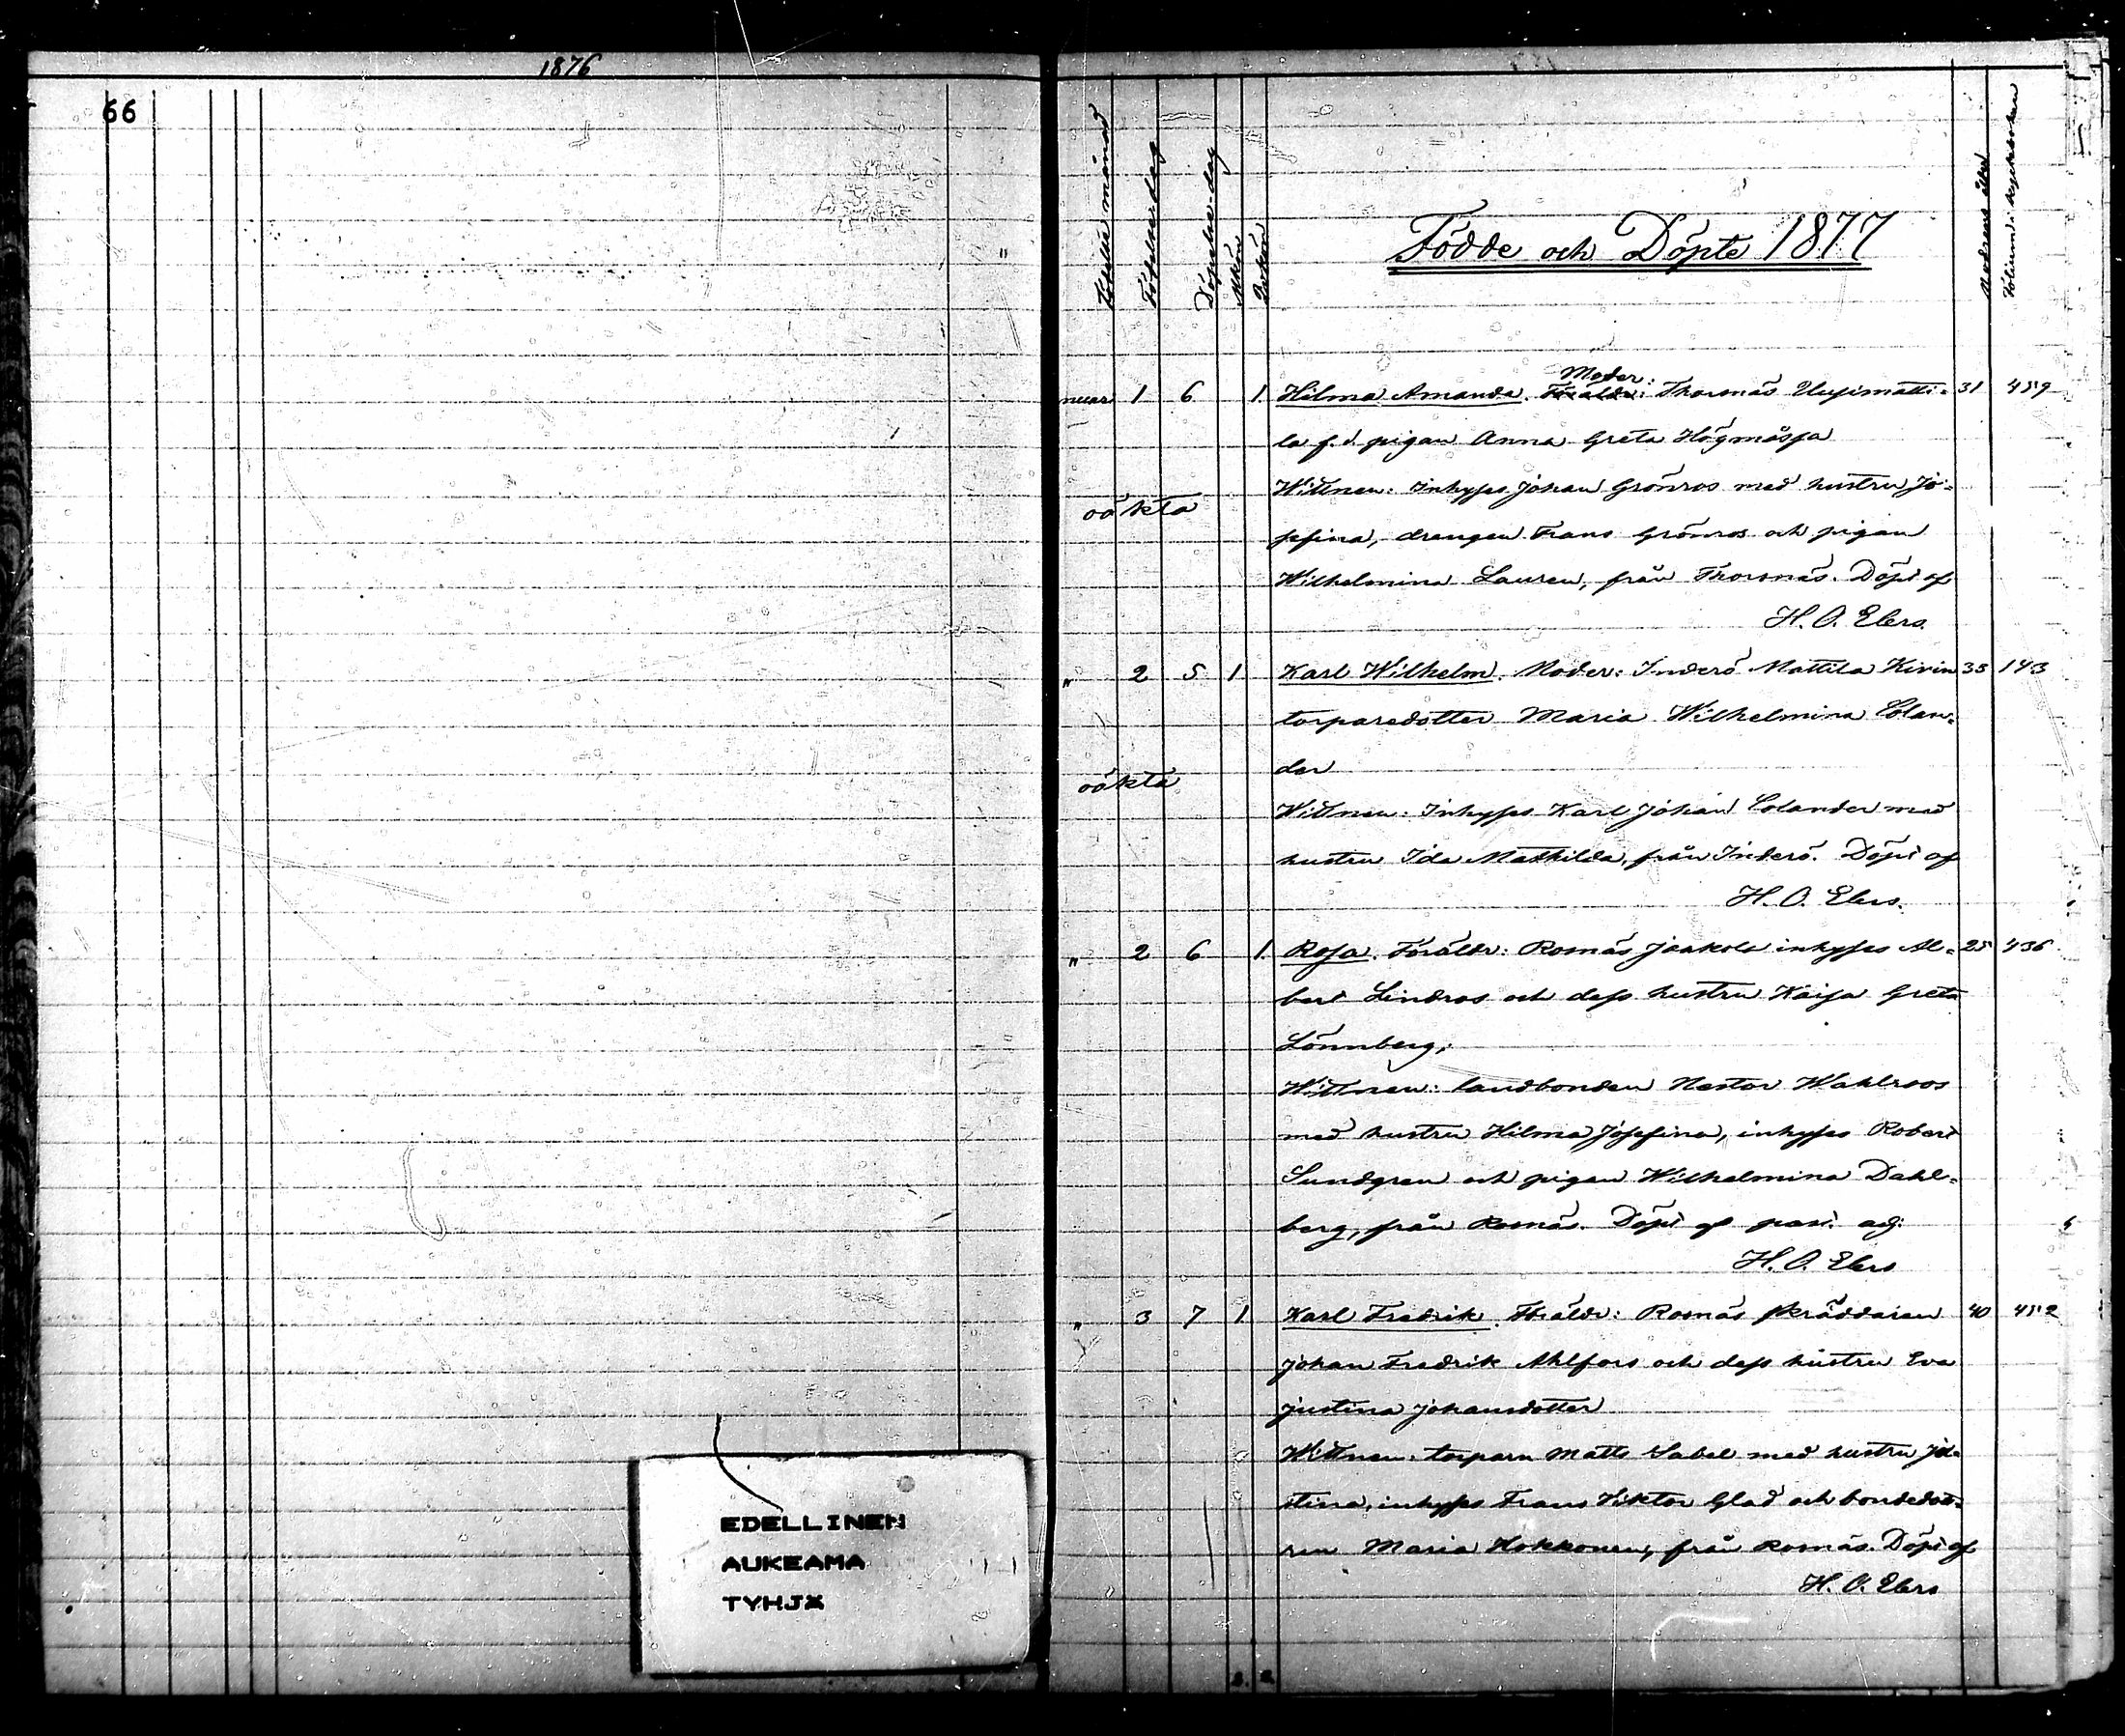 1876
66
Födelse månad
Födelse dag
Döpelse dag
Mkön
Qvkön
Födde och Döpte 1877
Modrens ålder
nuar 1 6 1 Hilma Amanda. Föräldr: Moder: Thorsnäs Uusimatti- 31 459
la f. d. pigan Anna Greta Högmåssa
oäkta
Wittnen: Inhyses Johan Grönros med hustru Jo-
sefina, drengen Frans Grönros och pigan
Wilhelmina Lauren, från Thorsnäs. Döpt af
H. O. Elers.
" 2 5 1 Karl Wilhelm. Moder: Inderö Mattila Kivin 35 143
torparedotter Maria Wilhelmina Colan-
der
oäkta
Wittnen: Inhyses Karl Johan Colander med
hustru Ida Mathilda, från Inderö. Döpt af
H. O. Elers.
" 2 6 1 Rosa. Föräldr: Rosnäs Jaakola inhyses Al- 25 436
bert Lindros och dess hustru Kaisa Greta
Lönnberg,
Wittnen: landbonden Nestor Wahlroos
med hustru Hilma Josefina, inhyses Robert
Sundgren och pigan Wilhelmina Dahl-
berg, från Rosnäs. Döpt af past. adj:
H. O. Elers
" 3 7 1 Karl Fredrik. Föräldr: Rosnäs skräddaren 40 452
Johan Fredrik Ahlfors och dess hustru Eva
Justina Johansdotter
Wittnen: torparn Matts Sabel med hustru
stina, inhyses Frans Viktor Glad och bondedot-
ren Maria Hokkonen, från Rosnäs. Döpt af
H. O. Elers
EDELLINEN
AUKEAMA
TYHJÄ